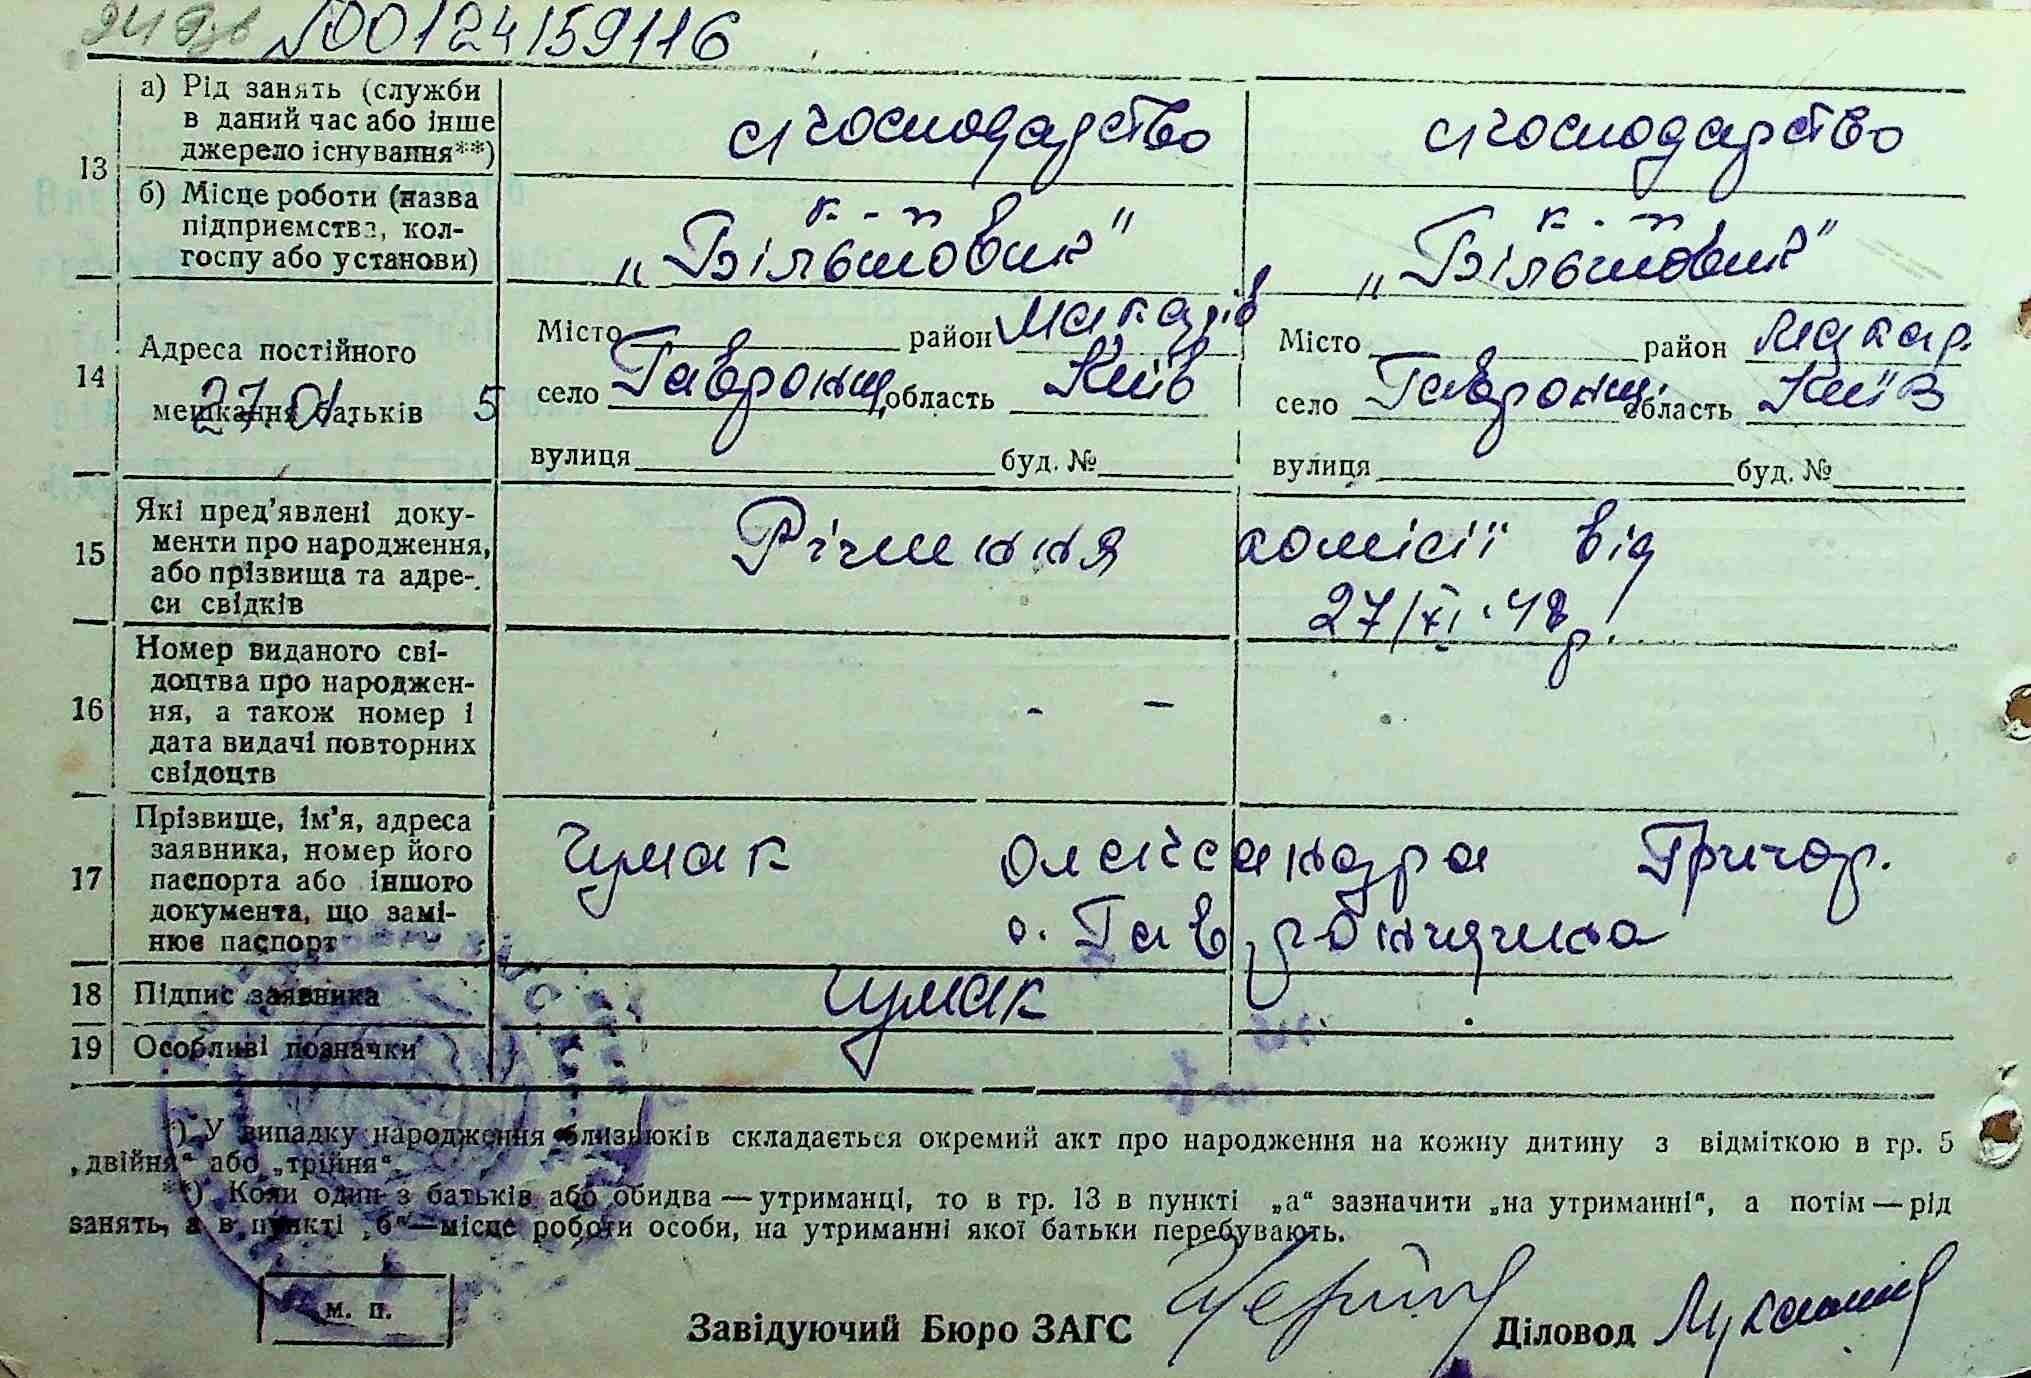 00124159116
13
а) Рід занять (служби
в даний час або інше
джерело існування**)
с/господарство
с/господарство
б) Місце роботи (назва
підприємства, кол-
госпу або установи)
к-п
„Більшовик"
к-п
„Більшовик"
14
Адреса постійного
мешкання батьків
27.01. 5
Місто район Макарів
село Гавронщ. область Київ
вулиця буд. №
Місто район Макар.
село Гавронщ. область Київ
вулиця буд. №
15
Які пред'явлені доку-
менти про народження,
або прізвища та адре-
си свідків
Рішення комісії від
27/XI.48р.
16
Номер виданого сві-
доцтва про народжен-
ня, а також номер і
дата видачі повторних
свідоцтв
- -
17
Прізвище, ім'я, адреса
заявника, номер його
паспорта або іншого
документа, що замі-
нює паспорт
Чумак Олександра Григор.
с. Гавронщина
18
Підпис заявника
Чумак
19
Особливі позначки
*) У випадку народження близнюків складається окремий акт про народження на кожну дитину з відміткою в гр. 5
„двійня" або „трійня".
**) Коли один з батьків або обидва — утриманці, то в гр. 13 в пункті „а" зазначити „на утриманні", а потім — рід
занять, а в пункті „б"—місце роботи особи, на утриманні якої батьки перебувають.
м. п.
Завідуючий Бюро ЗАГС
Діловод